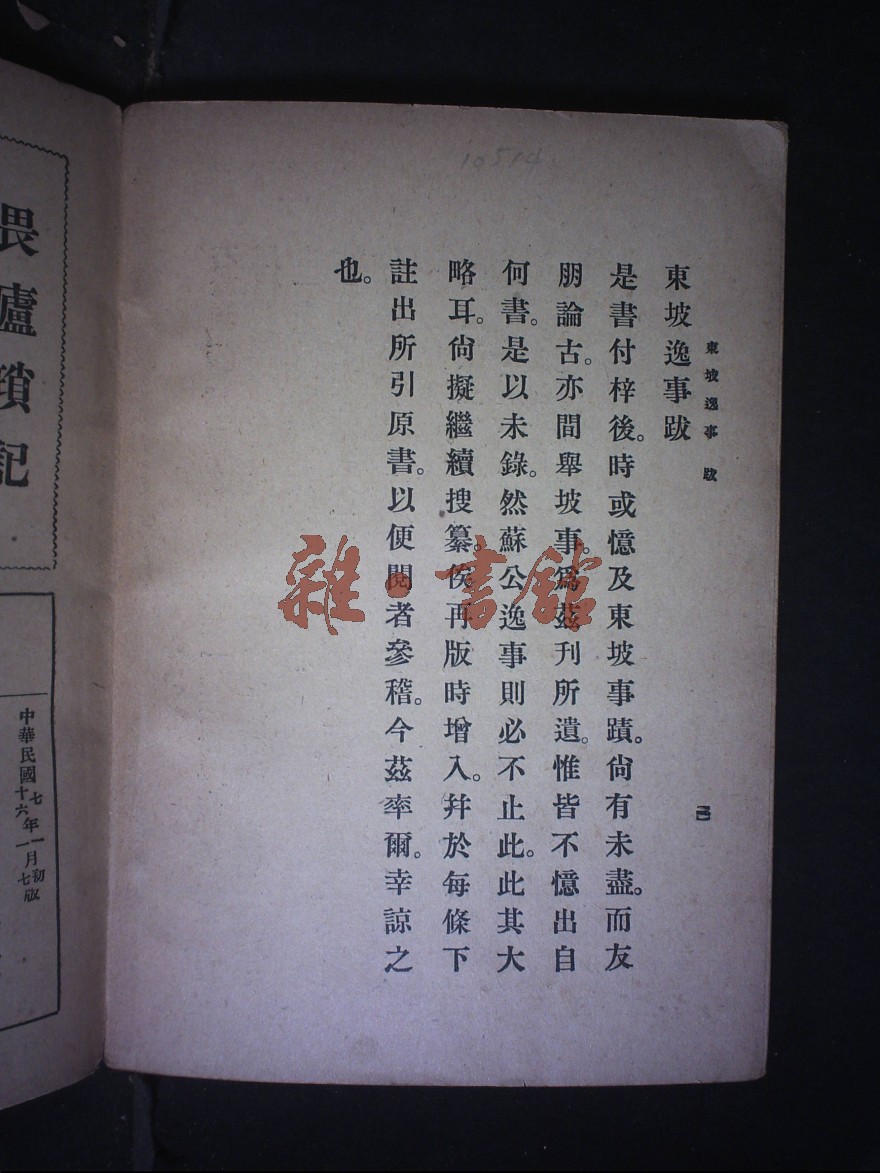 10514
東坡逸事 跋
東坡逸事跋
是書付梓後。時或憶及東坡事蹟。尙有未盡。而友
朋論古。亦間舉坡事。爲茲刊所遺。惟皆不憶出自
何書。是以未錄。然蘇公逸事則必不止此。此其大
略耳。尙擬繼續搜纂。俟再版時增入。幷於每條下
註出所引原書。以便閱者參稽。今茲率爾。幸諒之
也。
雜·書館
畏廬瑣記
中華民國
七年一月初版
十六 一 七